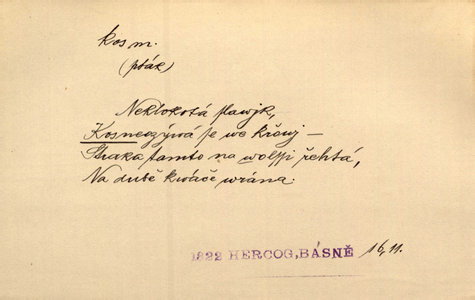 kos m.
(pták)
Neklokotá slawjk,
Kos neozýwá se we křowj –
Straka tamto na wolšsi řehtá,
Na dubě kwáče wrána.
1822 HERCOG, BÁSNĚ 16, 11.